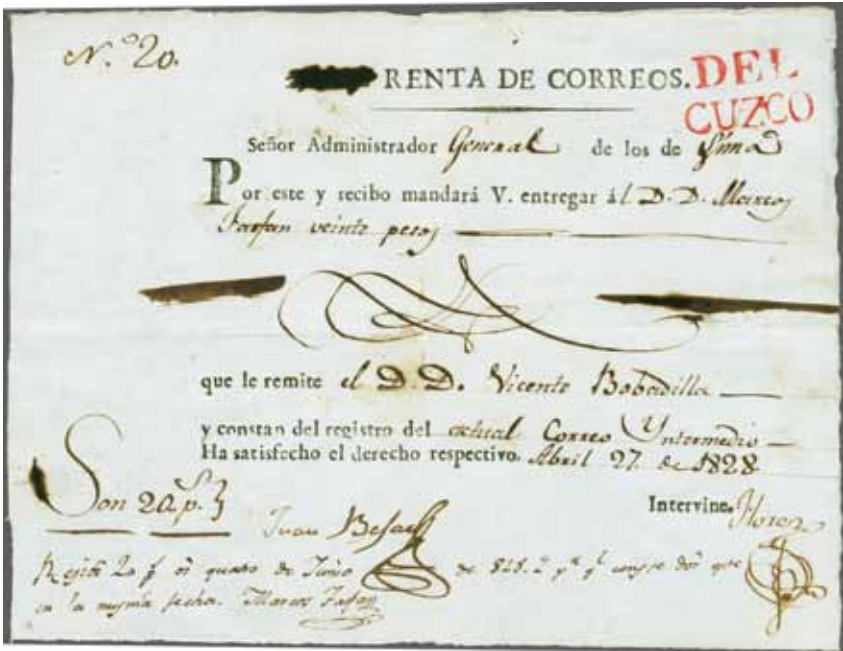 N.º 20.
RENTA DE CORREOS.
DEL
CUZCO
Señor Administrador General de los de Lima
Por este y recibo mandará V. entregar ál D. D. Marcos
Farfan veinte pesos
que le remite el D. D. Vicente Bobadilla
y constan del registro del actual Correo Yntermedio
Ha satisfecho el derecho respectivo. Abril 27. de 1828.
Son 20 p.s
Intervine.
Juan
en quatro de Junio de 828.
en la misma fecha. Marcos Farfan